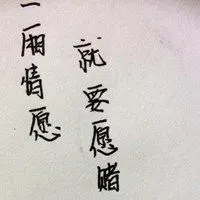 一厢情愿
就要愿赌